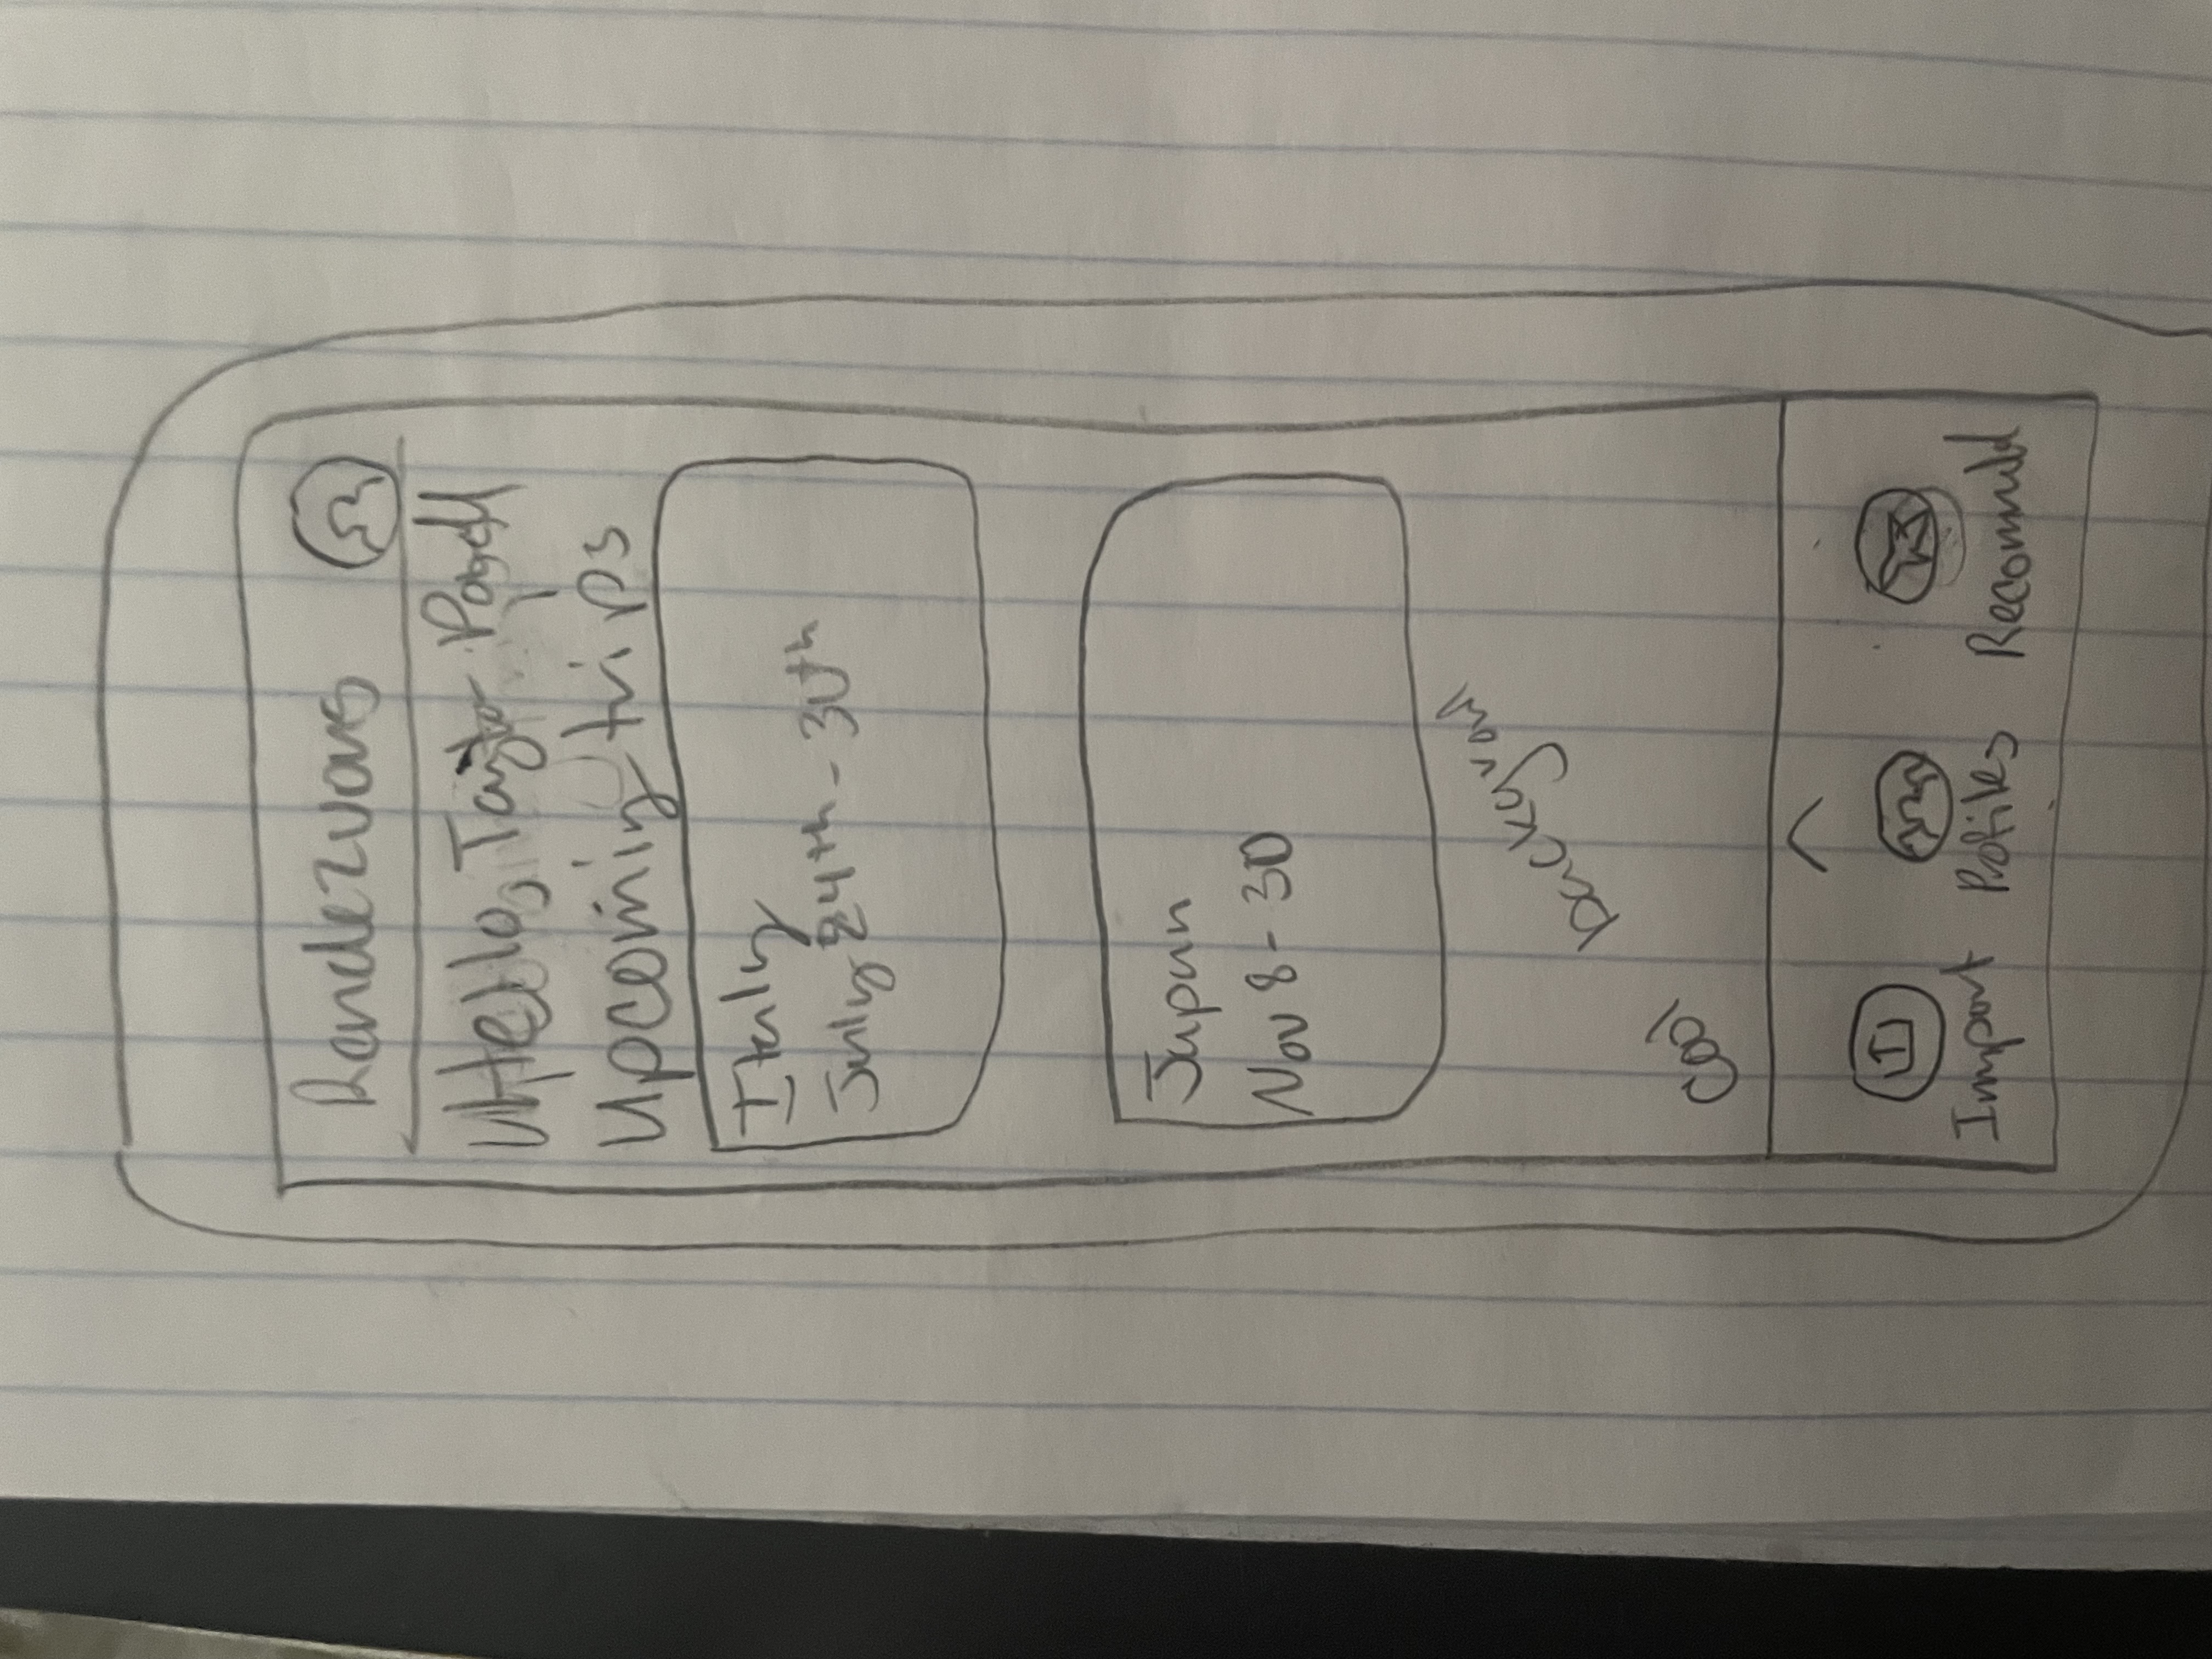 Randezvous
Hello, Taylor
Upcoming trips
Italy
July 24th - 30th
Japan
Nov 8 - 30
background
Cool
Import Pofiles Recomuld